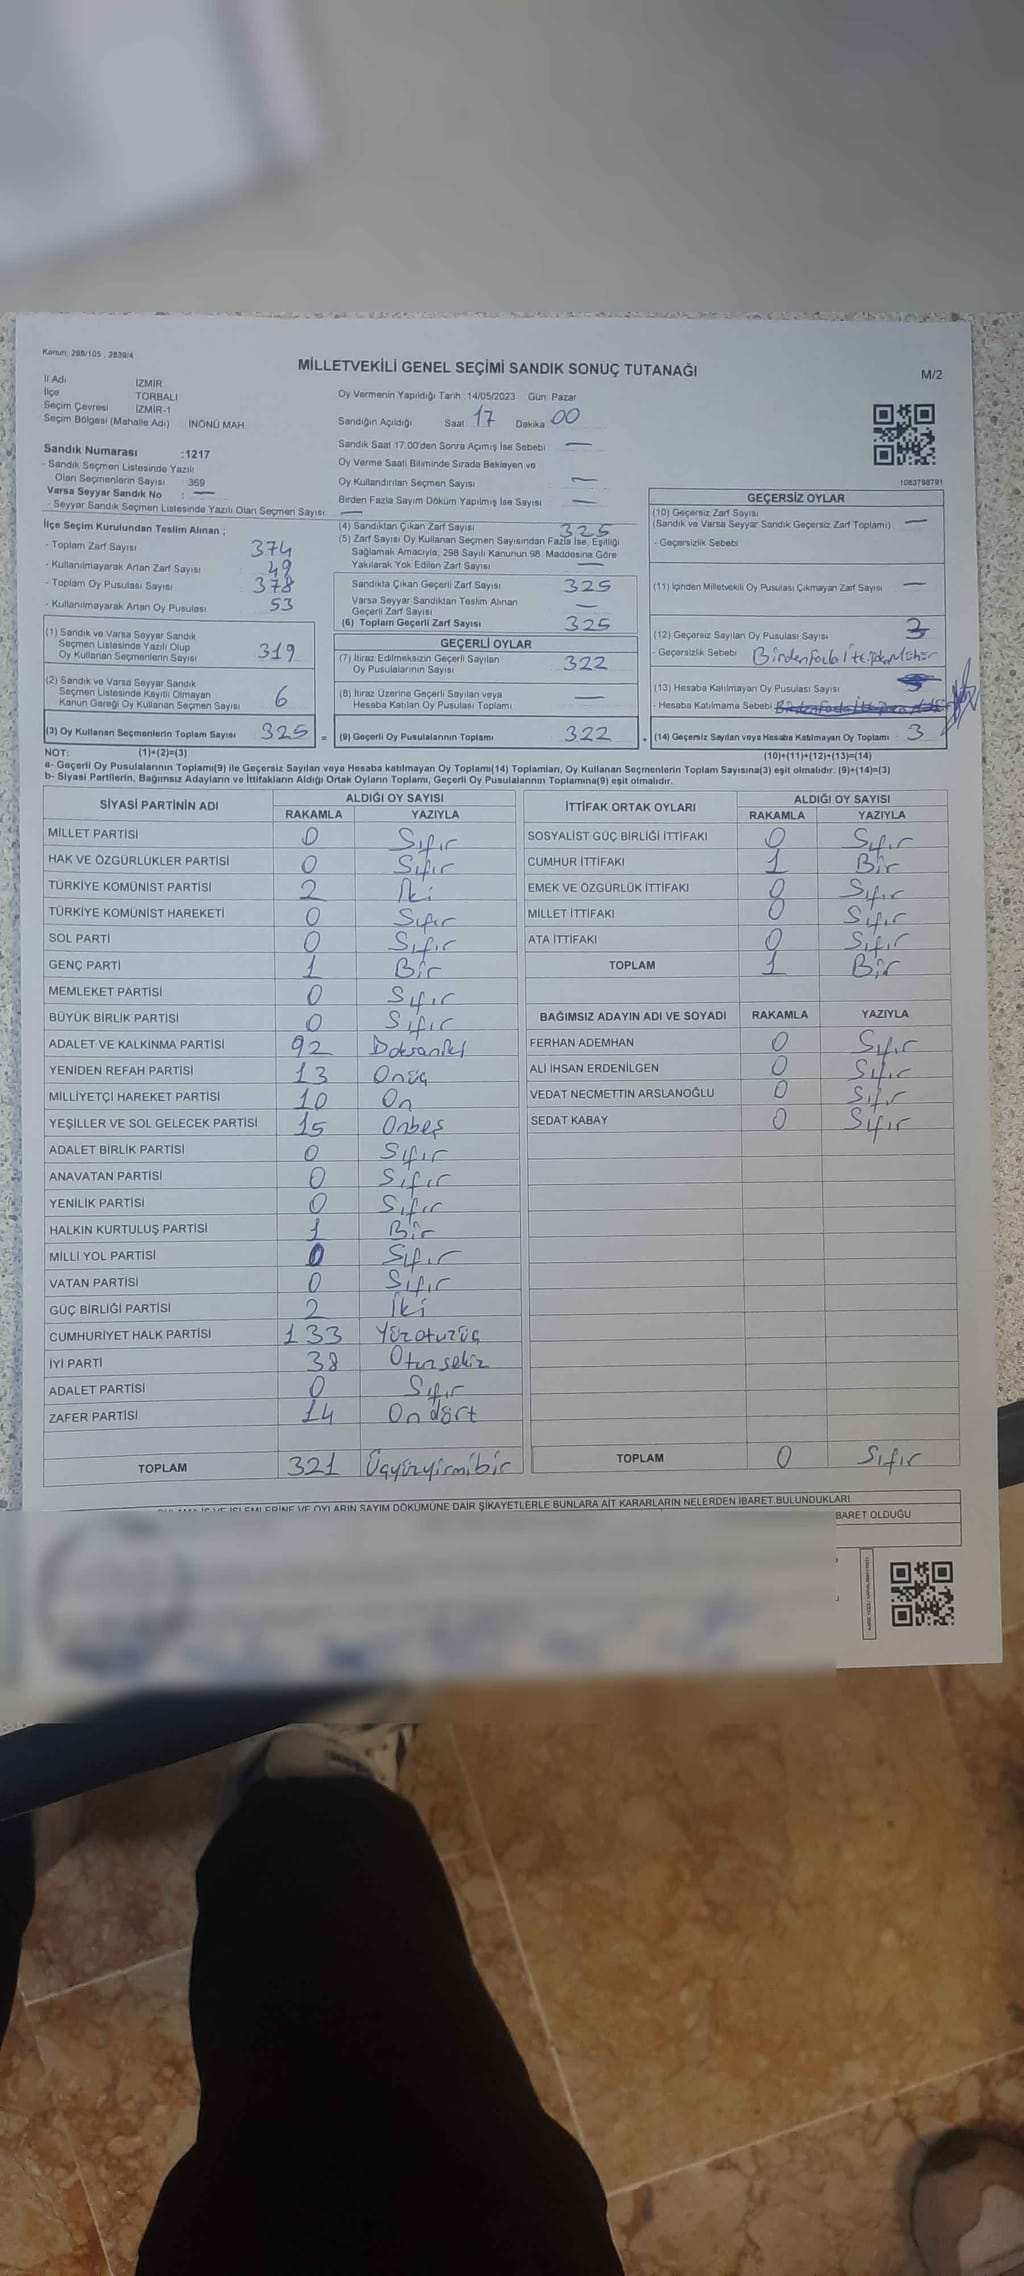 Kanun: 298/105 , 2839/4
MİLLETVEKİLİ GENEL SEÇİMİ SANDIK SONUÇ TUTANAĞI
M/2
İl Adı İZMİR
İlçe TORBALI
Seçim Çevresi İZMİR-1
Seçim Bölgesi (Mahalle Adı) İNÖNÜ MAH.
Sandık Numarası :1217
- Sandık Seçmen Listesinde Yazılı
Olan Seçmenlerin Sayısı : 369
Varsa Seyyar Sandık No : —
- Seyyar Sandık Seçmen Listesinde Yazılı Olan Seçmen Sayısı: —
Oy Vermenin Yapıldığı Tarih :14/05/2023 Gün: Pazar
Sandığın Açıldığı Saat 17 Dakika 00
Sandık Saat 17:00'den Sonra Açımış İse Sebebi —
Oy Verme Saati Bitiminde Sırada Bekleyen ve
Oy Kullandırılan Seçmen Sayısı —
Birden Fazla Sayım Döküm Yapılmış İse Sayısı —
1083798791
İlçe Seçim Kurulundan Teslim Alınan ;
- Toplam Zarf Sayısı 374
- Kullanılmayarak Artan Zarf Sayısı 49
- Toplam Oy Pusulası Sayısı 378
- Kullanılmayarak Artan Oy Pusulası 53
(1) Sandık ve Varsa Seyyar Sandık
Seçmen Listesinde Yazılı Olup
Oy Kullanan Seçmenlerin Sayısı 319
(2) Sandık ve Varsa Seyyar Sandık
Seçmen Listesinde Kayıtlı Olmayan
Kanun Gereği Oy Kullanan Seçmen Sayısı 6
(3) Oy Kullanan Seçmenlerin Toplam Sayısı 325 =
(4) Sandıktan Çıkan Zarf Sayısı 325
(5) Zarf Sayısı Oy Kullanan Seçmen Sayısından Fazla İse, Eşitliği
Sağlamak Amacıyla; 298 Sayılı Kanunun 98. Maddesine Göre
Yakılarak Yok Edilen Zarf Sayısı —
Sandıkta Çıkan Geçerli Zarf Sayısı 325
Varsa Seyyar Sandıktan Teslim Alınan
Geçerli Zarf Sayısı —
(6) Toplam Geçerli Zarf Sayısı 325
GEÇERLİ OYLAR
(7) İtiraz Edilmeksizin Geçerli Sayılan
Oy Pusulalarının Sayısı 322
(8) İtiraz Üzerine Geçerli Sayılan veya
Hesaba Katılan Oy Pusulası Toplamı —
(9) Geçerli Oy Pusulasının Toplamı 322 +
GEÇERSİZ OYLAR
(10) Geçersiz Zarf Sayısı
(Sandık ve Varsa Seyyar Sandık Geçersiz Zarf Toplamı) —
- Geçersizlik Sebebi
(11) İçinden Milletvekili Oy Pusulası Çıkmayan Zarf Sayısı —
(12) Geçersiz Sayılan Oy Pusulası Sayısı 3
- Geçersizlik Sebebi Birden fazla İttifaka Mühür
(13) Hesaba Katılmayan Oy Pusulası Sayısı
- Hesaba Katılmama Sebebi
(14) Geçersiz Sayılan veya Hesaba Katılmayan Oy Toplamı 3
NOT: (1)+(2)=(3) (10)+(11)+(12)+(13)=(14)
a- Geçerli Oy Pusulalarının Toplamı(9) ile Geçersiz Sayılan veya Hesaba katılmayan Oy Toplamı(14) Toplamları, Oy Kullanan Seçmenlerin Toplam Sayısına(3) eşit olmalıdır. (9)+(14)=(3)
b- Siyasi Partilerin, Bağımsız Adayların ve İttifakların Aldığı Ortak Oyların Toplamı, Geçerli Oy Pusulalarının Toplamına(9) eşit olmalıdır.
SİYASİ PARTİNİN ADI ALDIĞI OY SAYISI
RAKAMLA YAZIYLA
MİLLET PARTİSİ 0 Sıfır
HAK VE ÖZGÜRLÜKLER PARTİSİ 0 Sıfır
TÜRKİYE KOMÜNİST PARTİSİ 2 İki
TÜRKİYE KOMÜNİST HAREKETİ 0 Sıfır
SOL PARTİ 0 Sıfır
GENÇ PARTİ 1 Bir
MEMLEKET PARTİSİ 0 Sıfır
BÜYÜK BİRLİK PARTİSİ 0 Sıfır
ADALET VE KALKINMA PARTİSİ 92 Doksaniki
YENİDEN REFAH PARTİSİ 13 Onüç
MİLLİYETÇİ HAREKET PARTİSİ 10 On
YEŞİLLER VE SOL GELECEK PARTİSİ 15 Onbeş
ADALET BİRLİK PARTİSİ 0 Sıfır
ANAVATAN PARTİSİ 0 Sıfır
YENİLİK PARTİSİ 0 Sıfır
HALKIN KURTULUŞ PARTİSİ 1 Bir
MİLLİ YOL PARTİSİ 0 Sıfır
VATAN PARTİSİ 0 Sıfır
GÜÇ BİRLİĞİ PARTİSİ 2 İki
CUMHURİYET HALK PARTİSİ 133 Yüzotuzüç
İYİ PARTİ 38 Otuzsekiz
ADALET PARTİSİ 0 Sıfır
ZAFER PARTİSİ 14 On dört
TOPLAM 321 Üçyüzyirmibir
İTTİFAK ORTAK OYLARI ALDIĞI OY SAYISI
RAKAMLA YAZIYLA
SOSYALİST GÜÇ BİRLİĞİ İTTİFAKI 0 Sıfır
CUMHUR İTTİFAKI 1 Bir
EMEK VE ÖZGÜRLÜK İTTİFAKI 0 Sıfır
MİLLET İTTİFAKI 0 Sıfır
ATA İTTİFAKI 0 Sıfır
TOPLAM 1 Bir
BAĞIMSIZ ADAYIN ADI VE SOYADI RAKAMLA YAZIYLA
FERHAN ADEMHAN 0 Sıfır
ALİ İHSAN ERDENİLGEN 0 Sıfır
VEDAT NECMETTİN ARSLANOĞLU 0 Sıfır
SEDAT KABAY 0 Sıfır
TOPLAM 0 Sıfır
VE İŞLEMLERİNE VE OYLARIN SAYIM DÖKÜMÜNE DAİR ŞİKAYETLERLE BUNLARA AİT KARARLARIN NELERDEN İBARET BULUNDUKLARI
BARET OLDUĞU